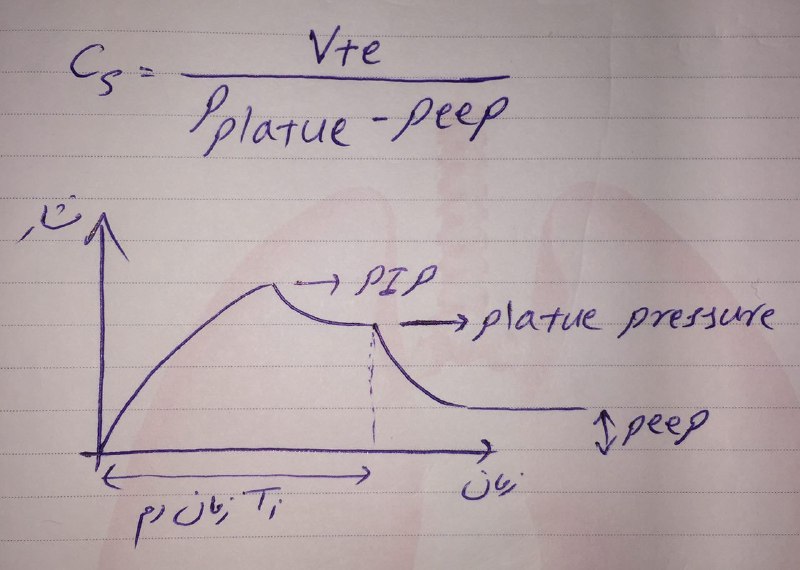 Cs = Vte / Pplatue - peep
فشار
→ PIP
→ platue pressure
↕ peep
زمان
زمان دم Ti